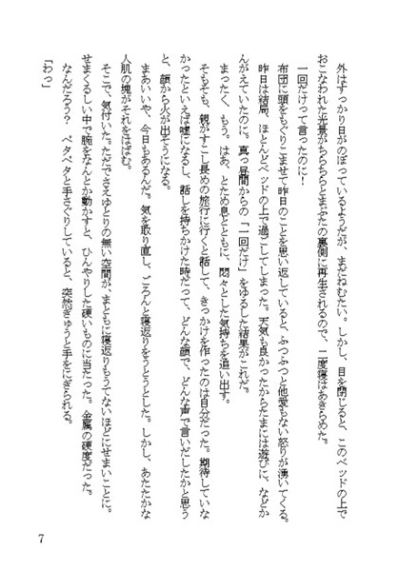 外はすっかり日がのぼっているようだが、まだねむたい。しかし、目を閉じると、このベッドの上で
おこなわれた光景がちらちらとまぶたの裏側に再生されるので、二度寝はあきらめた。
一回だけって言ったのに！
布団に頭をもぐりこませて昨日のことを思い返していると、ふつふつと他愛もない怒りが湧いてくる。
昨日は結局、ほとんどベッドの上で過ごしてしまった。天気も良かったからたまには遊びに、などか
んがえていたのに。真っ昼間からの「一回だけ」をゆるした結果がこれだ。
まったく、もう。はあ、とため息とともに、悶々とした気持ちを追い出す。
そもそも、親がすこし長めの旅行に行くと話して、きっかけを作ったのは自分だった。期待していな
かったといえば嘘になるし、話しを持ちかけた時だって、どんな顔で、どんな声で言いだしたかと思う
と、顔から火が出そうになる。
まあいいや、今日もあるんだ。気を取り直し、ごろんと寝返りをうとうとした。しかし、あたたかな
人肌の塊がそれをはばむ。
そこで、気付いた。ただでさえゆとりの無い空間が、まともに寝返りもうてないほどにせまいことに。
せまくるしい中で腕をなんとか動かすと、ひんやりした硬いものに当たった。金属の硬度だった。
なんだろう？　ペタペタと手さぐりしていると、突然ぎゅうと手をにぎられる。
「わっ」
7